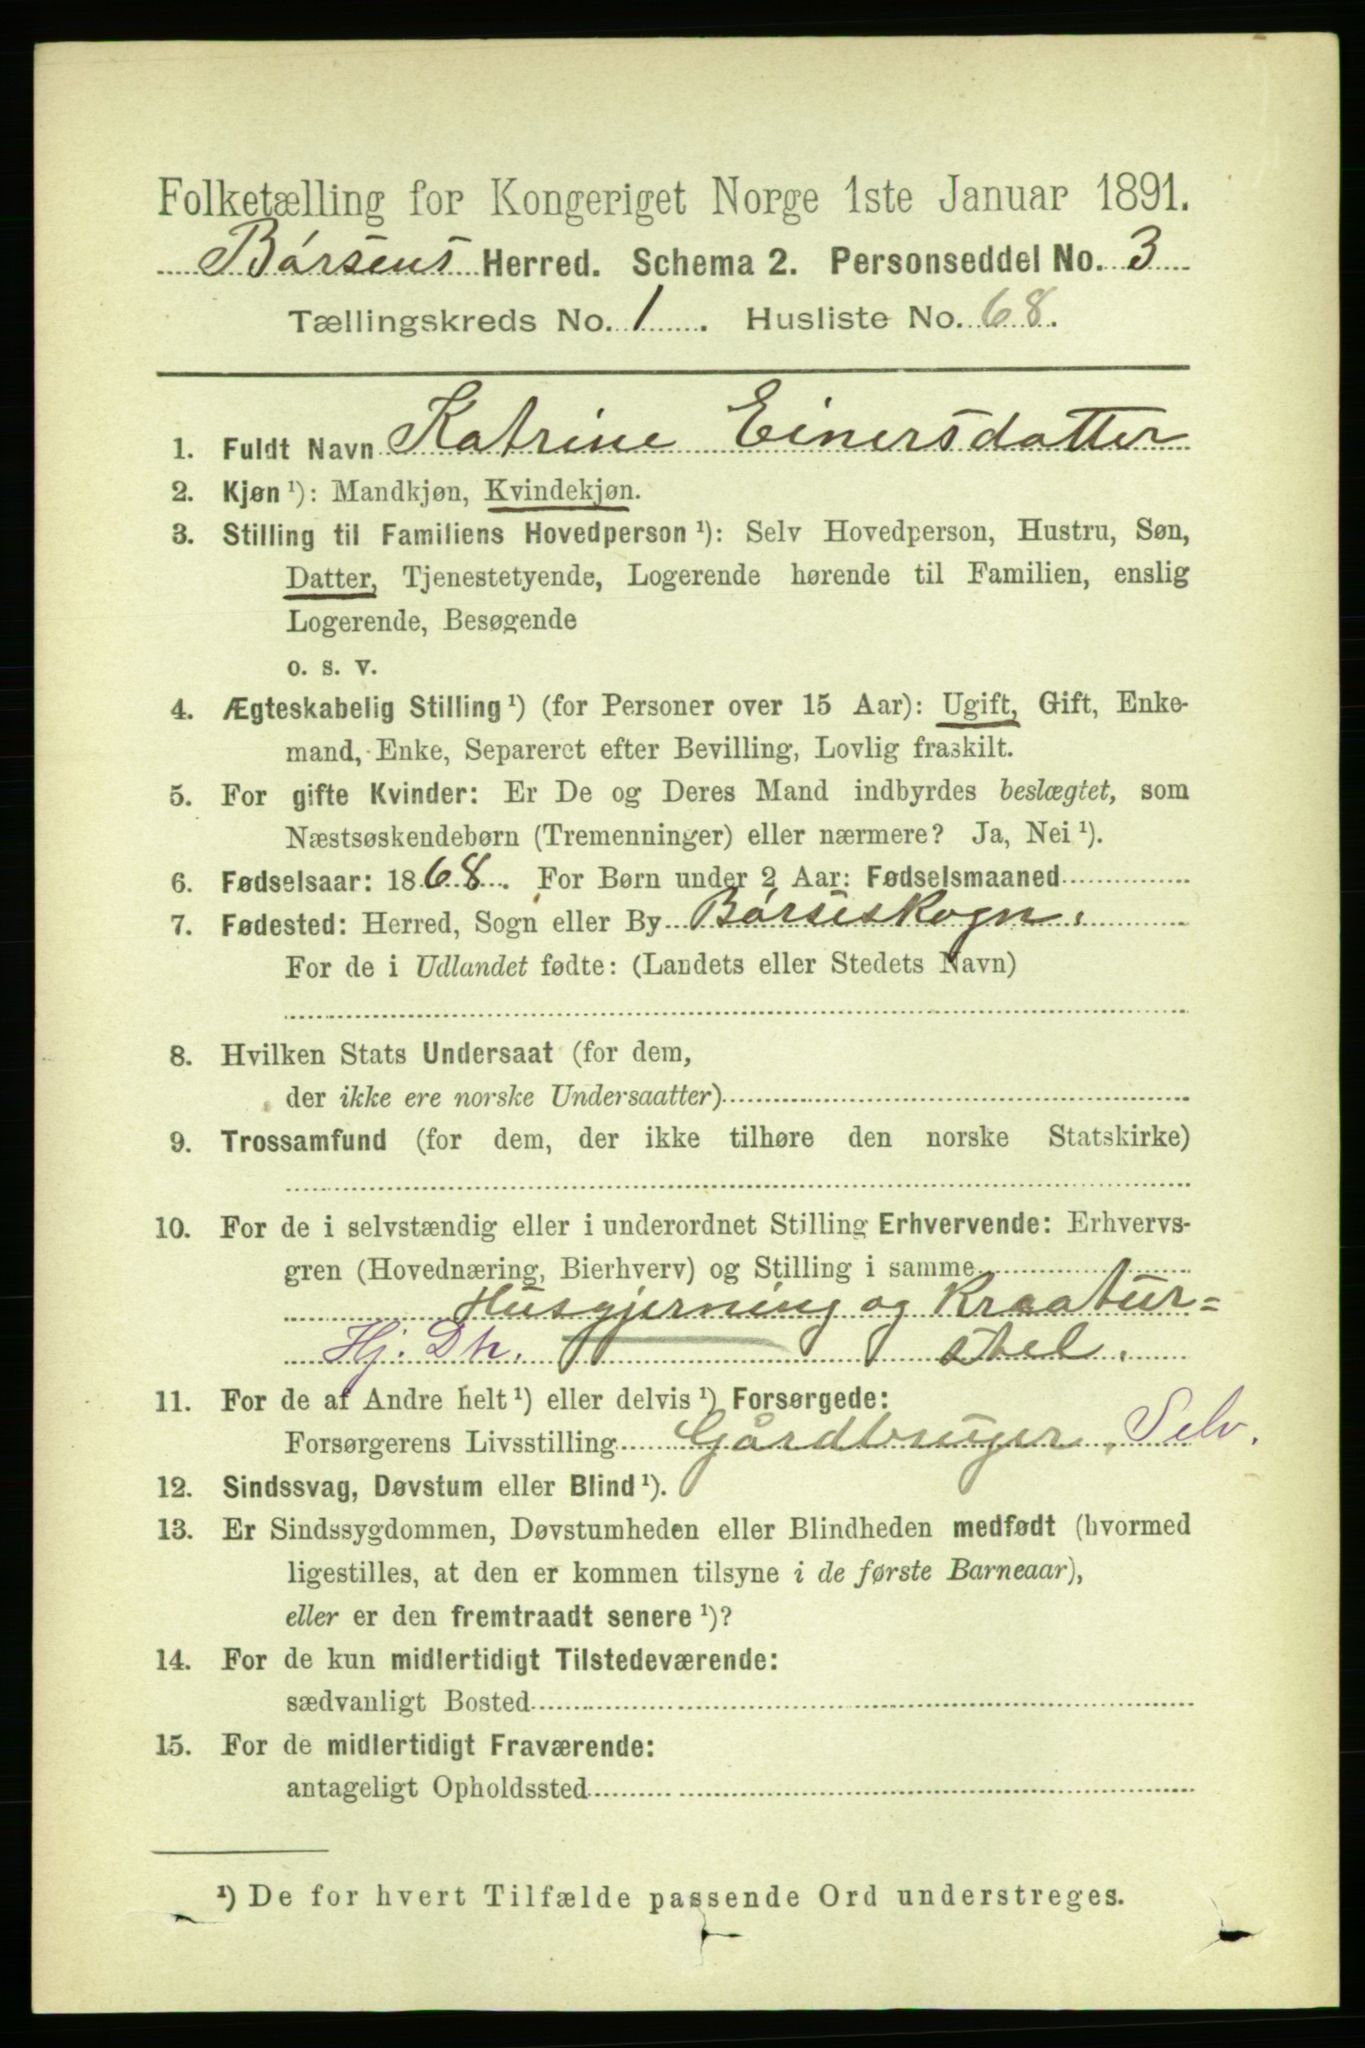 Folketælling for Kongeriget Norge 1ste Januar 1891.
Børsens Herred. Schema 2. Personseddel No. 3
Tællingskreds No. 1. Husliste No. 68.
1. Fuldt Navn Katrine Einersdatter
2. Kjøn ¹): Mandkjøn, Kvindekjøn.
3. Stilling til Familiens Hovedperson ¹): Selv Hovedperson, Hustru, Søn,
Datter, Tjenestetyende, Logerende hørende til Familien, enslig
Logerende, Besøgende
o. s. v.
4. Ægteskabelig Stilling ¹) (for Personer over 15 Aar): Ugift, Gift, Enke-
mand, Enke, Separeret efter Bevilling, Lovlig fraskilt.
5. For gifte Kvinder: Er De og Deres Mand indbyrdes beslægtet, som
Næstsøskendebørn (Tremenninger) eller nærmere? Ja, Nei ¹).
6. Fødselsaar: 1868. For Børn under 2 Aar: Fødselsmaaned
7. Fødested: Herred, Sogn eller By Børseskogn.
For de i Udlandet fødte: (Landets eller Stedets Navn)
8. Hvilken Stats Undersaat (for dem,
der ikke ere norske Undersaatter)
9. Trossamfund (for dem, der ikke tilhøre den norske Statskirke)
10. For de i selvstændig eller i underordnet Stilling Erhvervende: Erhvervs-
gren (Hovednæring, Bierhverv) og Stilling i samme
Husgjerning og Kreatur-
Hj. Dtr. stel.
11. For de af Andre helt ¹) eller delvis ¹) Forsørgede:
Forsørgerens Livsstilling Gårdbruger, Selv.
12. Sindssvag, Døvstum eller Blind ¹).
13. Er Sindssygdommen, Døvstumheden eller Blindheden medfødt (hvormed
ligestilles, at den er kommen tilsyne i de første Barneaar),
eller er den fremtraadt senere ¹)?
14. For de kun midlertidigt Tilstedeværende:
sædvanligt Bosted
15. For de midlertidigt Fraværende:
antageligt Opholdssted
¹) De for hvert Tilfælde passende Ord understreges.